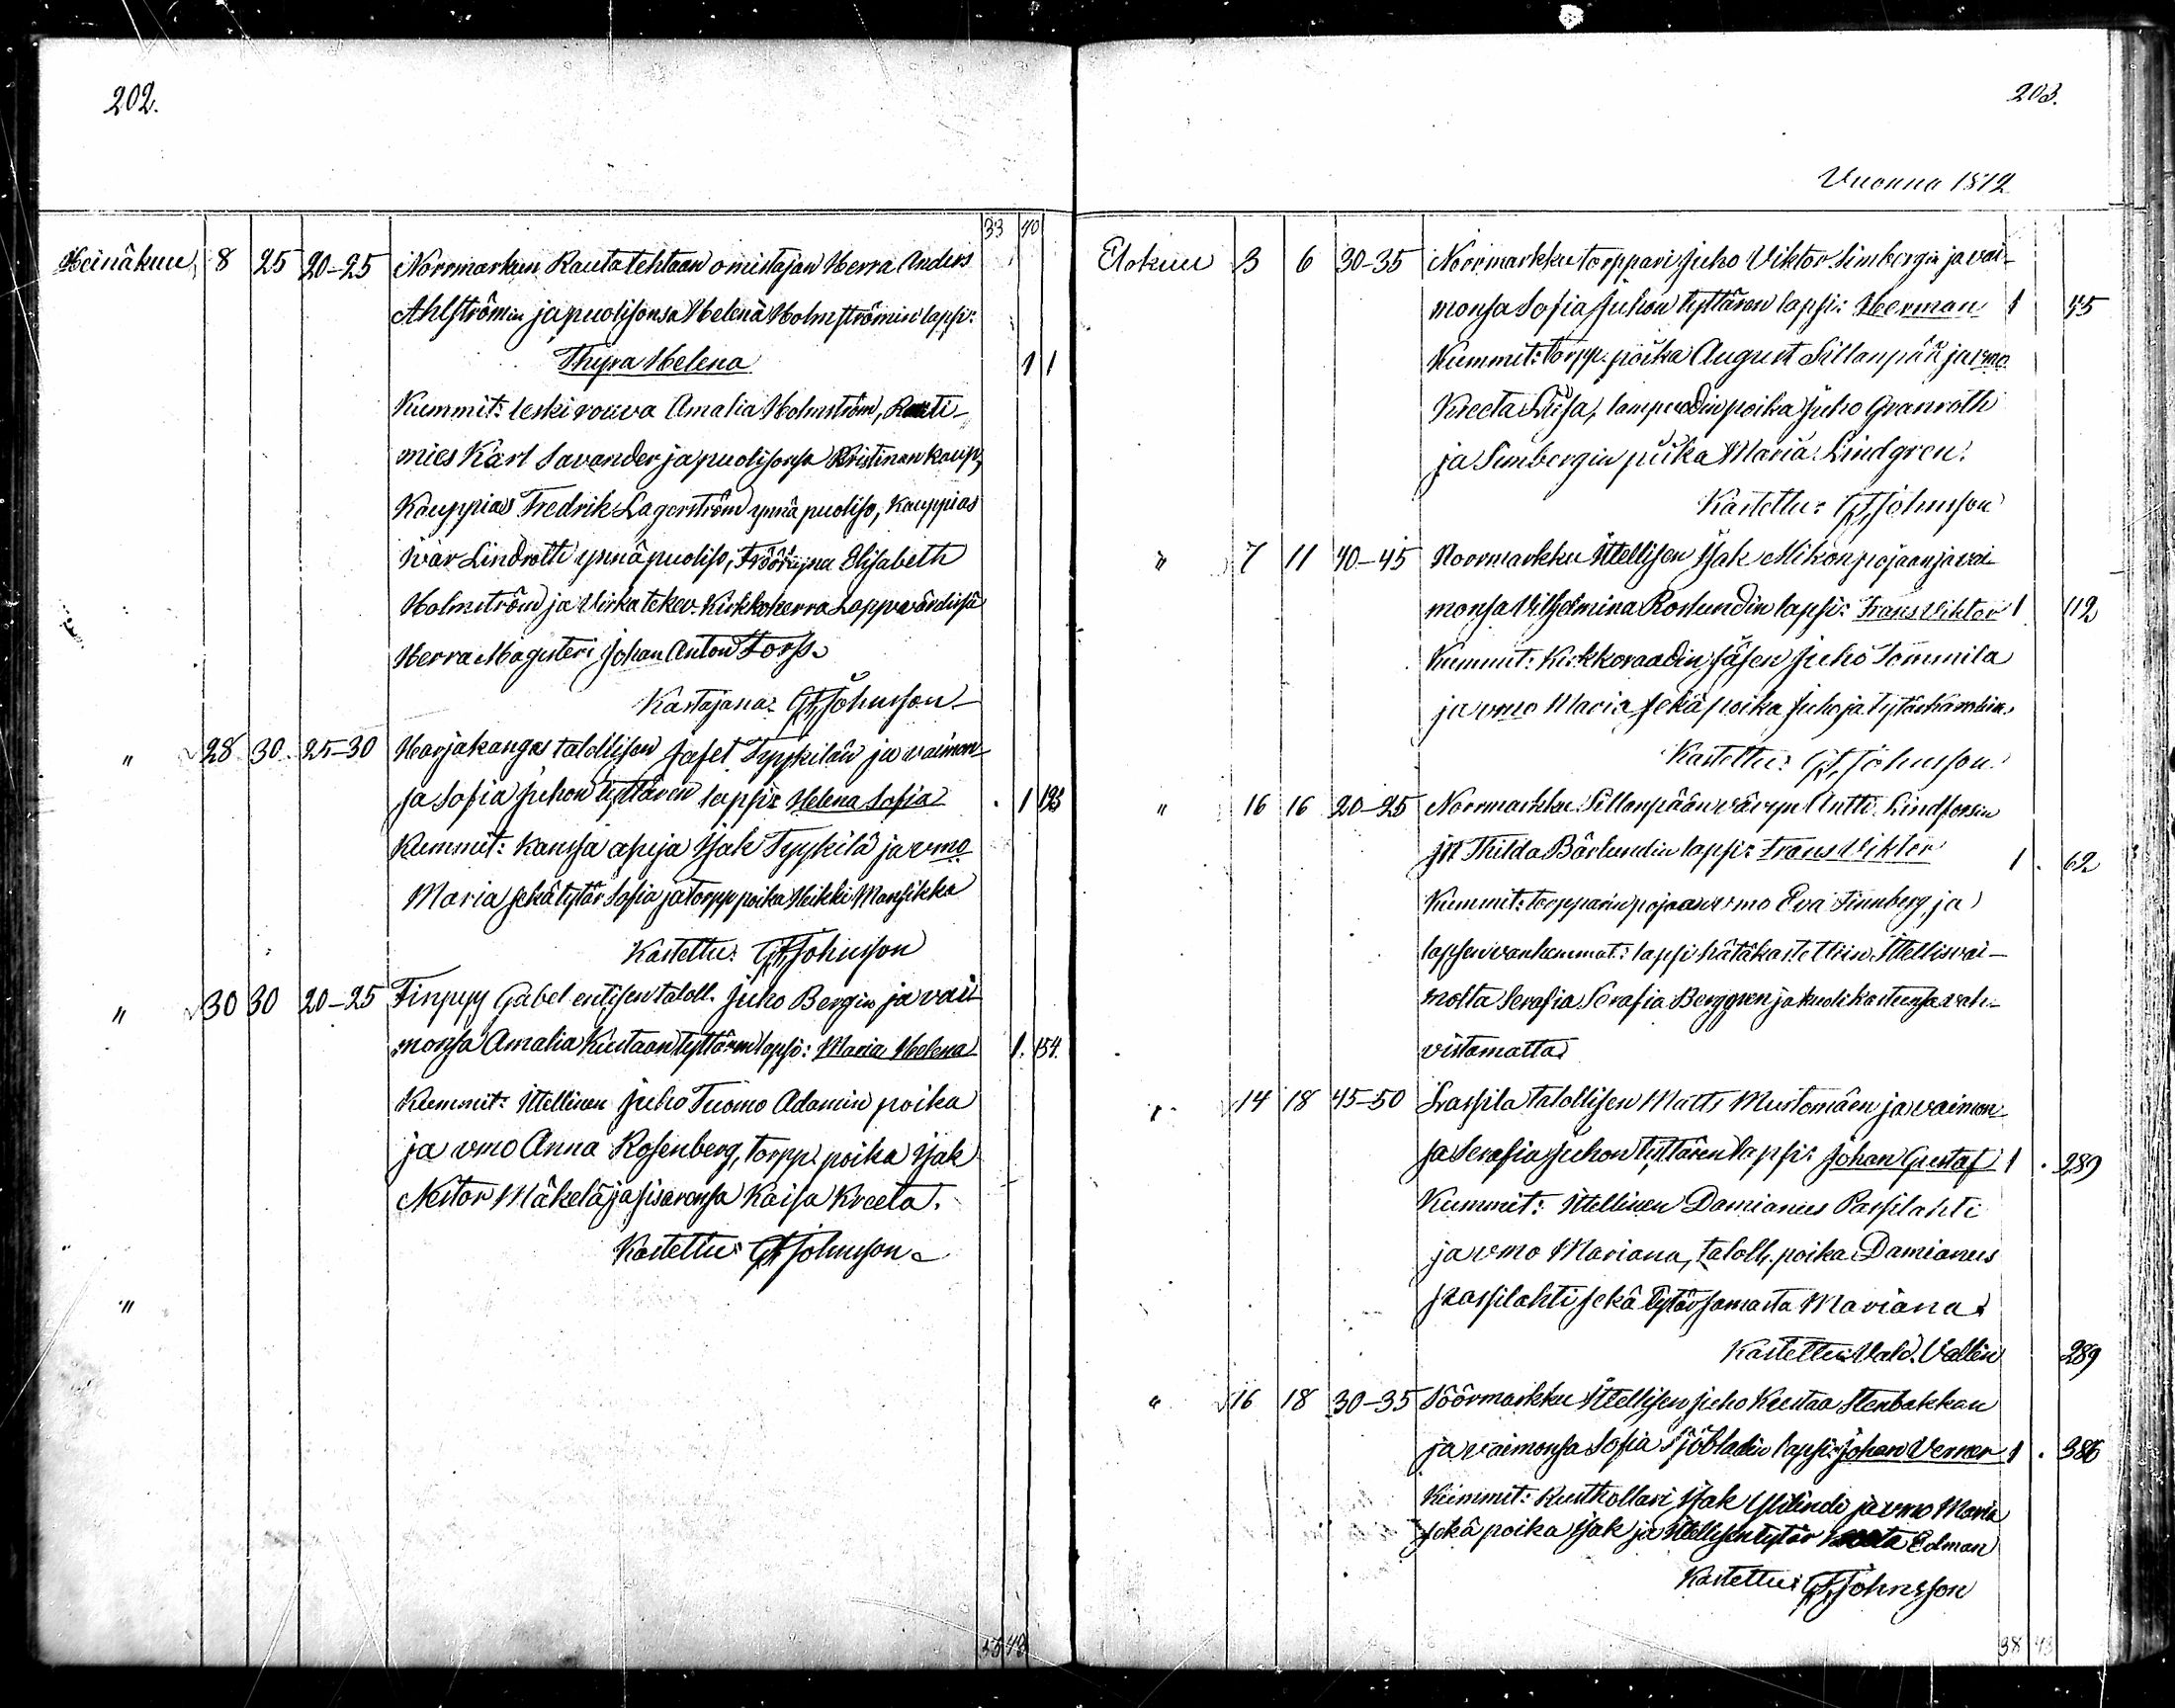 202.
33 40
Heinäkuu 8 25 20-25 Norrmarkun Rautatehtaan omistajan Herra Anders
Ahlströmin ja puolisonsa Helena Holmströmin lapsi:
Thyra Helena 1 1
Kummit: leskirouva Amalia Holmström, Raati-
mies Karl Savander ja puolisonsa Kristinan kaup.,
Kauppias Fredrik Lagerström ynnä puoliso, Kauppias
Ivar Lindroth ynnä puoliso, Elisabeth
Holmström ja Virkatekev. Kirkkoherra Lappvärdissä
Herra Magisteri Johan Anton Forss.
Kastajana: Johnsson
" 28 30. 25-30 Harjakangas talollisen Jafet Tyykilän ja vaimon-
sa Sofia Juhon tyttären lapsi: Helena Sofia 1
Kummit: Isak Tyykilä ja vmo
Maria sekä tytär Sofia ja torpp. poika Heikki Mansikka
Kastettu: Johnsson
" 30 30 20-25 Finpyy Gabel entisen taloll. Juho Bergin ja vai-
monsa Amalia Kustaan tyttären lapsi: Maria Helena 1. 154.
Kummit: Itellinen Juho Tuomo Adamin poika
ja vmo Anna Rosenberg, torpp. poika Isak
Nestor Mäkelä ja sisarensa Kaisa Kreeta.
Kastettu: Johnsson
"
203.
Vuonna 1872
Elokuu 3 6 30-35 Norrmarkku torppari Juho Viktor Simbergin ja vai-
monsa Sofia Juhon tyttären lapsi: Herman 1
Kummit: torpp. poika August Sillanpää ja vmo
Kreeta Liisa, lampuodin poika Juho Granroth
ja Simbergin piika Maria Lindgren.
Kastettu: Johnsson
" 7 11 40-45 Noormarkku Itellisen Isak Mikon pojan ja vai-
monsa Vilhelmina Roslundin lapsi: Frans Viktor 1 112
Kummit: Kirkkoraadin jäsen Juho Tommila
ja vmo Maria sekä poika Juho ja tytär
Kastettu: Johnsson
" 16 16 20-25 Norrmarkku Sillanpään vävyn Antti Lindforsin
ja Thilda Bärlundin lapsi: Frans Viktor 1 . 62
Kummit: torpparin pojan vmo Eva Finnberg ja
lapsen vanhemmat: lapsi hätäkastettiin Itellisvai-
molta Serafia Serafia Berggren ja kuoli kasteensa vah-
vistamatta
14 18 45-50 Lassila talollisen Matts Mustomäen ja vaimon-
sa Serafia Juhon tyttären lapsi: Johan Gustaf 1 . 289
Kummit: Itellinen Damianus Passilahti
ja vmo Mariana, taloll. poika Damianus
Passilahti sekä tytär samasta Mariana.
Kastettu: Vald. Vallin 289
" 16 18 30-35 Söörmarkku Itellisen Juho Kustaa Stenbakkan
ja vaimonsa Sofia Sjöbladin lapsi: Johan Verner 1 . 386
Kummit: Rusthollari Isak Ylilindi ja vmo Maria
sekä poika Isak ja Itellisen tytär Edman
Kastettu: Johnsson
38 43